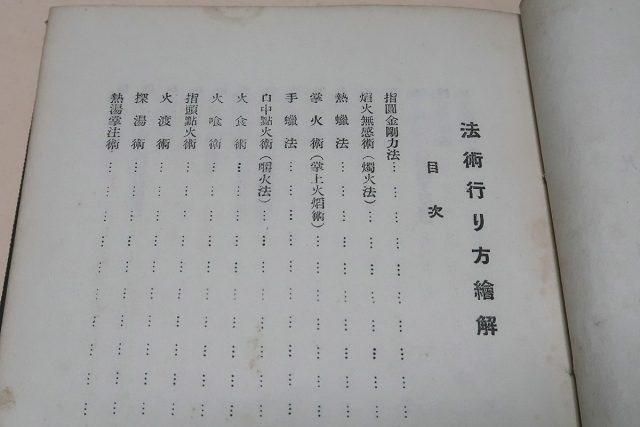 法術行り方繪解
目次
指圓金剛力法………………
焰火無感術(燭火法)………………
熱蠟法………………
掌火術(掌上火焰術)………………
手蠟法………………
口中點火術(嚼火法)………………
火食術………………
火喰術………………
指頭點火術………………
火渡術………………
探湯術………………
熱湯掌注術………………